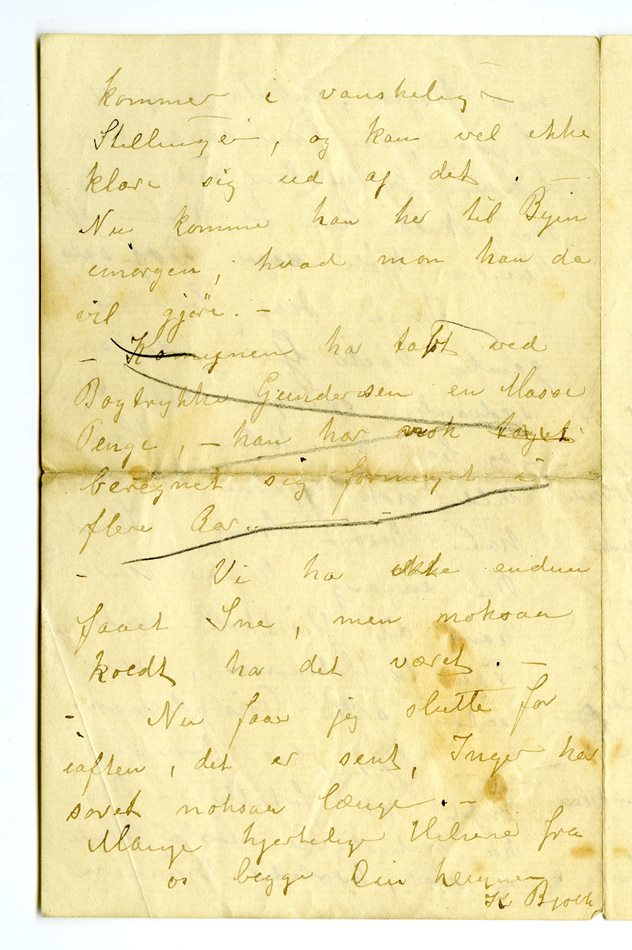 kommer i vanskelig
Stillinger, og kan vel ikke
klare sig ud af det. —
Nu komme han her til Byen
imorgen, hvad mon han da
vil gjøre. —
— Komunen ha tabt ved
Bogtrykke Gundersen en Masse
Penge, — han har nok taget
beregnet sig formeget i
flere Aar.
— Vi ha ikke endnu
faaet Sne, men noksaa
koldt ha det været. —
— Nu faar jeg slutte for
iaften, det er sent, Inger har
sovet noksaa længe. —
Mange hjertelige Hilsene fra
os begge Din hengivne
K